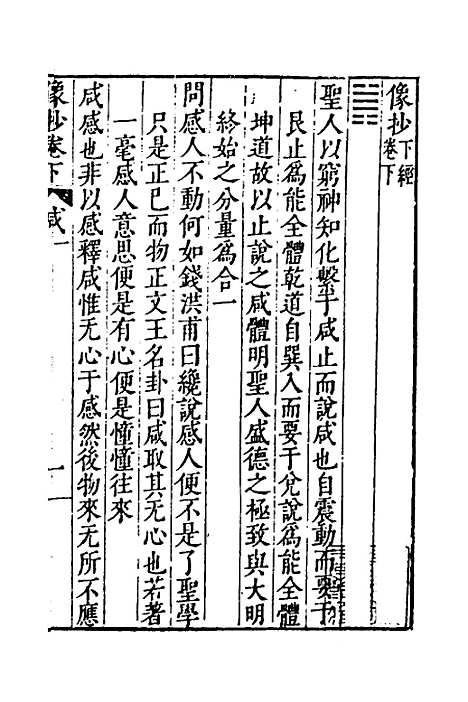 像抄下經
卷下
聖人以窮神知化繫于咸止而說咸也自震動而要于
艮止為能全體乾道自巽入而要于兌說為能全體
坤道故以止說之咸體明聖人盛德之極致與大明
終始之分量為合一
問感人不動何如錢洪甫曰纔說感人便不是了聖學
只是正己而物正文王名卦曰咸取其无心也若著
一毫感人意思便是有心便是憧憧往來
咸感也非以感釋咸惟无心于感然後物來无所不應
像抄卷下
咸
一